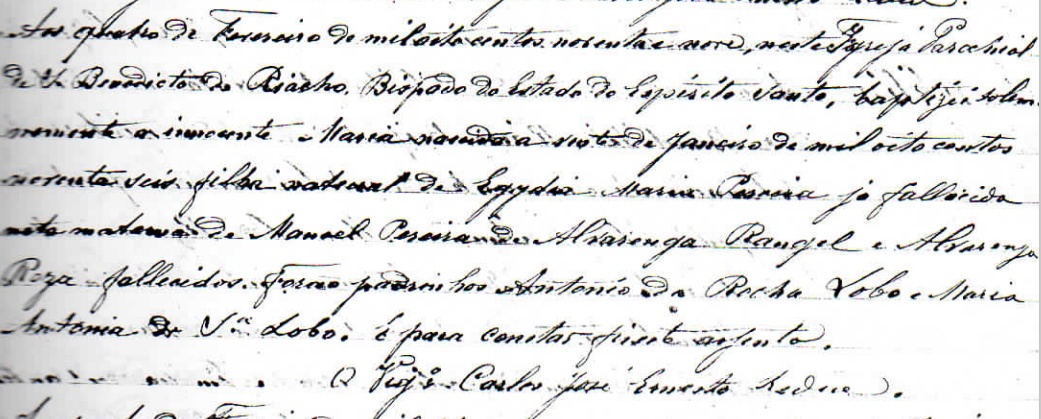 Aos quatro de Fevereiro de mil oito centos noventa e nove, neste Igreja Parochial
de S. Benedicto do Riacho, Bispado do Estado do Espirito Santo, baptizei solem-
nemente a innocente Maria nascida a sete de Janeiro de mil oito centos
noventa seis filha natural de Egydia Maria Pereira ja fallecida
neta materna de Manoel Pereira de Alvarenga Rangel e Alvarenga
Roza fallecidos. Forão padrinhos Antonio da Rocha Lobo e Maria
Antonia de Lobo. é para constar fiz este assento.
O Vigº Carlos José Ernesto